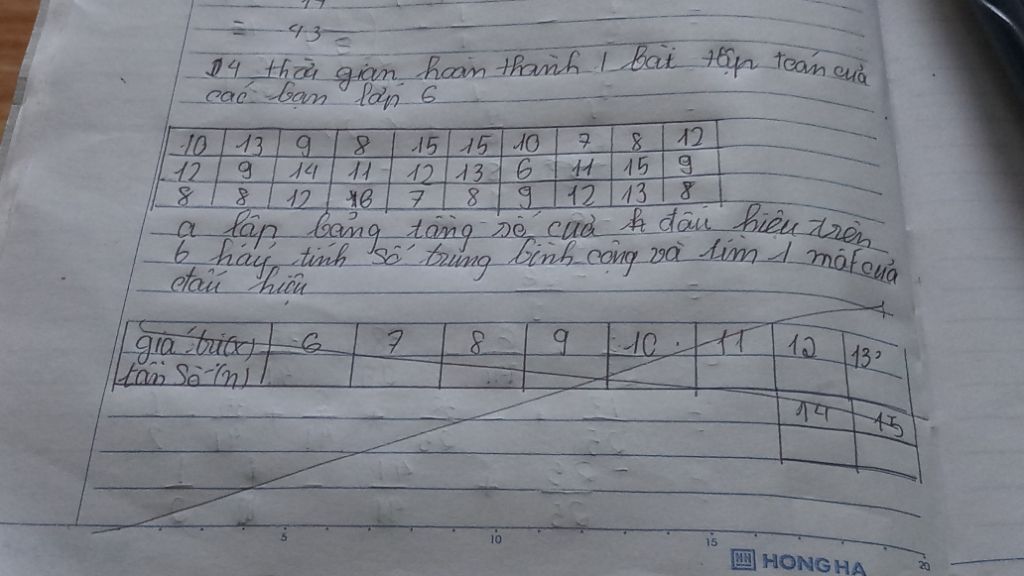 = 43
14 thời gian hoàn thành 1 bài tập toán của
các bạn lớp 6
10 13 9 8 15 15 10 7 8 12
12 9 14 11 12 13 6 11 15 9
8 8 12 6 7 8 9 12 13 8
a lập bảng tầng số của dấu hiệu trên
b hãy tính số trung bình cộng và tìm 1 mốt của
dấu hiệu
giá trị(x) 6 7 8 9 10 11 12 13
tần số (n)
14 15
5 10 15 20
HONG HA